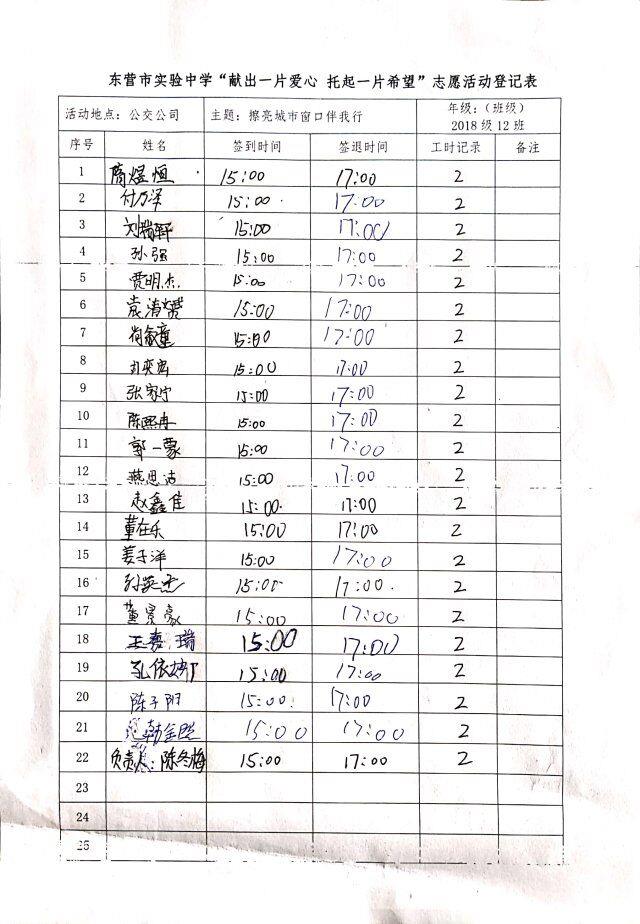 东营市实验中学“献出一片爱心 托起一片希望”志愿活动登记表
活动地点：公交公司 主题：擦亮城市窗口伴我行 年级：（班级） 2018级12班
序号 姓名 签到时间 签退时间 工时记录 备注
1 商煜恒 15:00 17:00 2
2 付万泽 15:00 17:00 2
3 刘瑞轩 15:00 17:00 2
4 孙强 15:00 17:00 2
5 贾明杰 15:00 17:00 2
6 15:00 17:00 2
7 15:00 17:00 2
8 15:00 17:00 2
9 张家宁 15:00 17:00 2
10 陈熙冉 15:00 17:00 2
11 郭一蒙 15:00 17:00 2
12 燕思洁 15:00 17:00 2
13 赵鑫佳 15:00 17:00 2
14 董在乐 15:00 17:00 2
15 姜子洋 15:00 17:00 2
16 15:00 17:00 2
17 董昊豪 15:00 17:00 2
18 王嘉瑞 15:00 17:00 2
19 孔依婷 15:00 17:00 2
20 陈子阳 15:00 17:00 2
21 15:00 17:00 2
22 负责人：陈冬梅 15:00 17:00 2
23
24
25